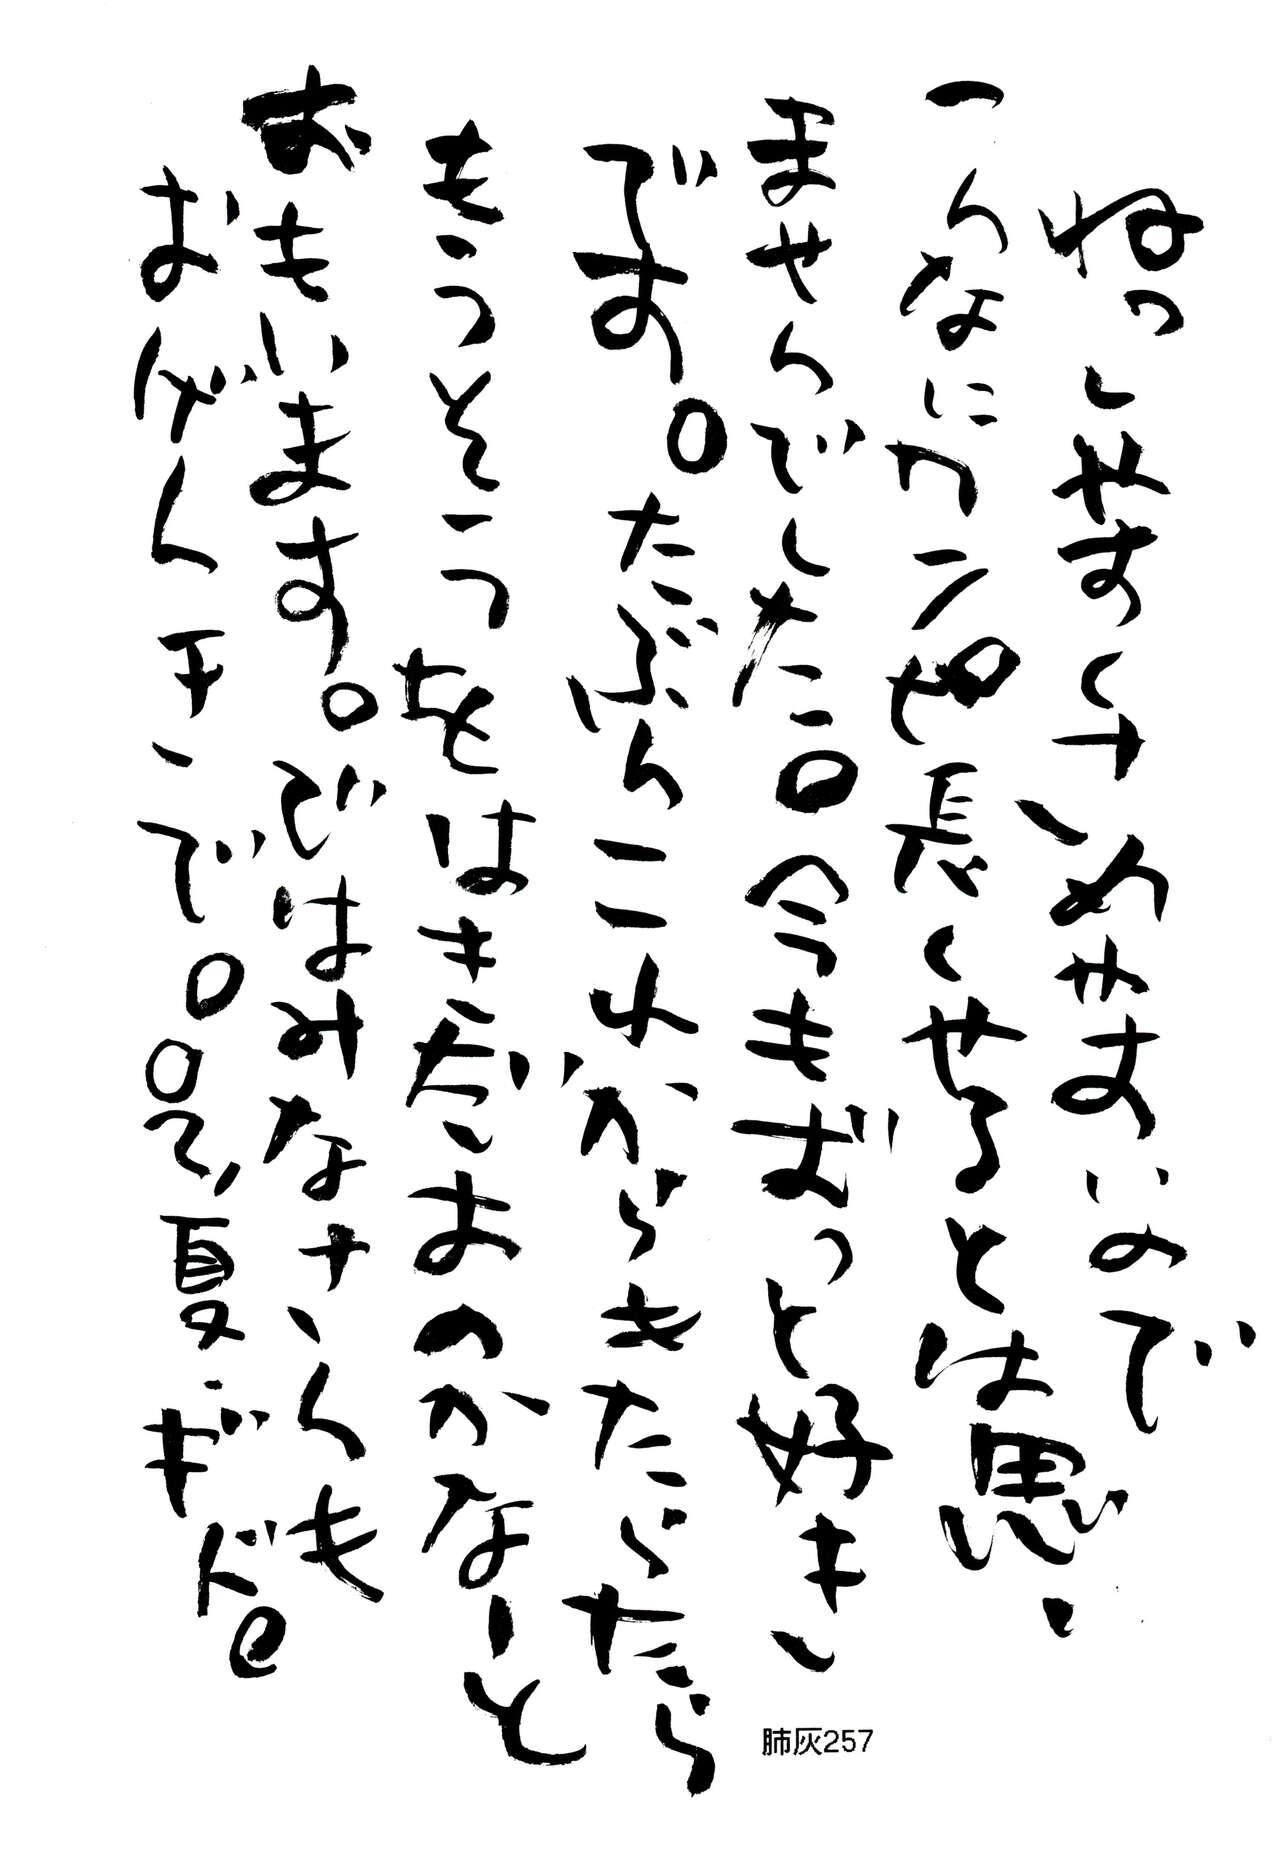 ねっしやすくさめやすいので
こんなにカンペ長くやるとは思い
ませんでした。今もずっと好き
です。たぶんこれからきたらたら
もうそうをはきだすのかなーと
おもいます。ではみなさんも
おげんきで。02,夏.ギド
肺灰257